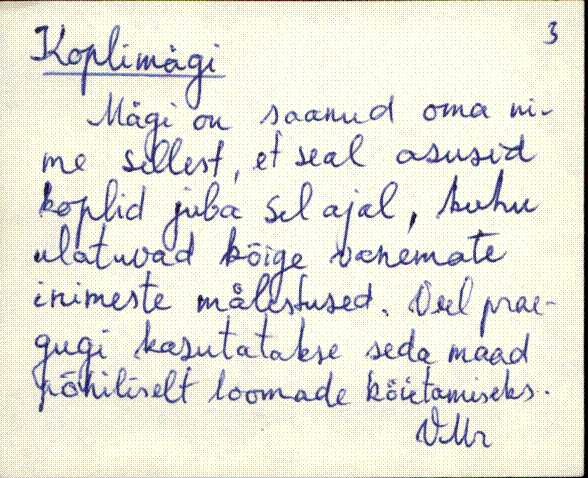 3
Koplimägi
Mägi on saanud oma ni-
me sellest, et seal asusid
koplid juba sel ajal, kuhu
ulatuvad kõige vanemate
inimeste mälestused. Veel prae-
gugi kasutatakse seda maad
põhiliselt loomade köietamiseks.
VMr